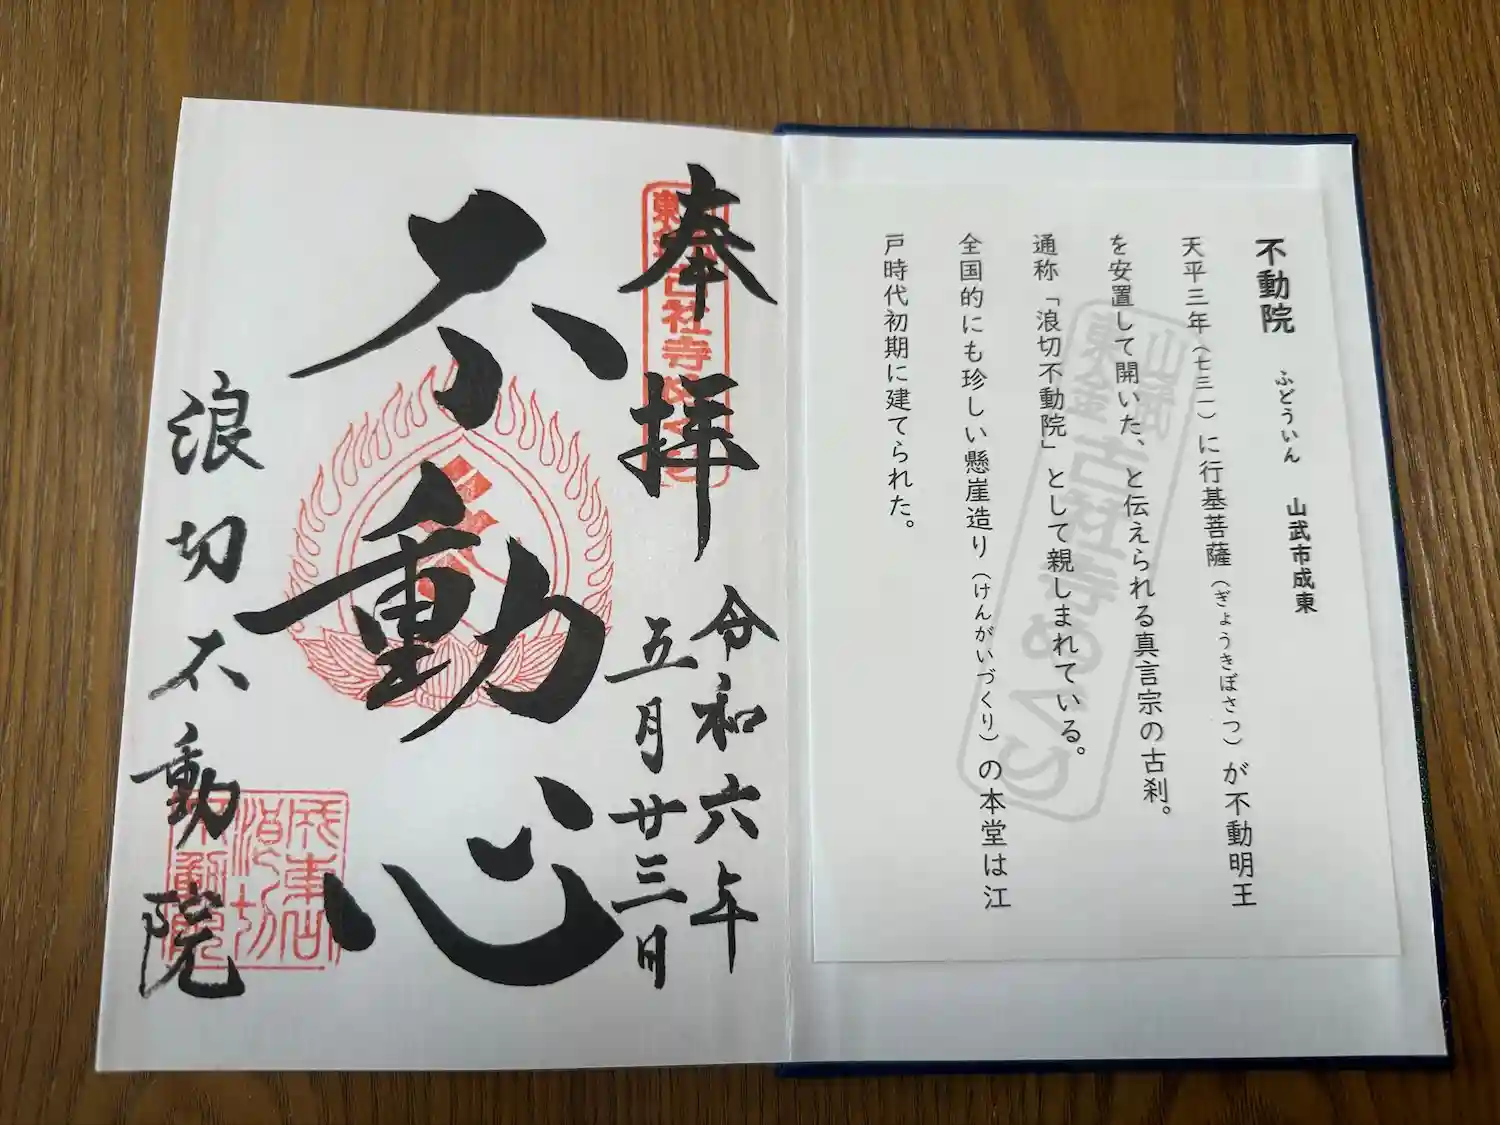 不動院 ふどういん 山武市成東
天平三年(七三一)に行基菩薩(ぎょうきぼさつ)が不動明王
を安置して開いた、と伝えられる真言宗の古刹。
通称「浪切不動院」として親しまれている。
全国的にも珍しい懸崖造り(けんがいづくり)の本堂は江
戸時代初期に建てられた。
奉拝
令和六年
五月廿三日
不動心
浪切不動院
成東
浪切
不動院